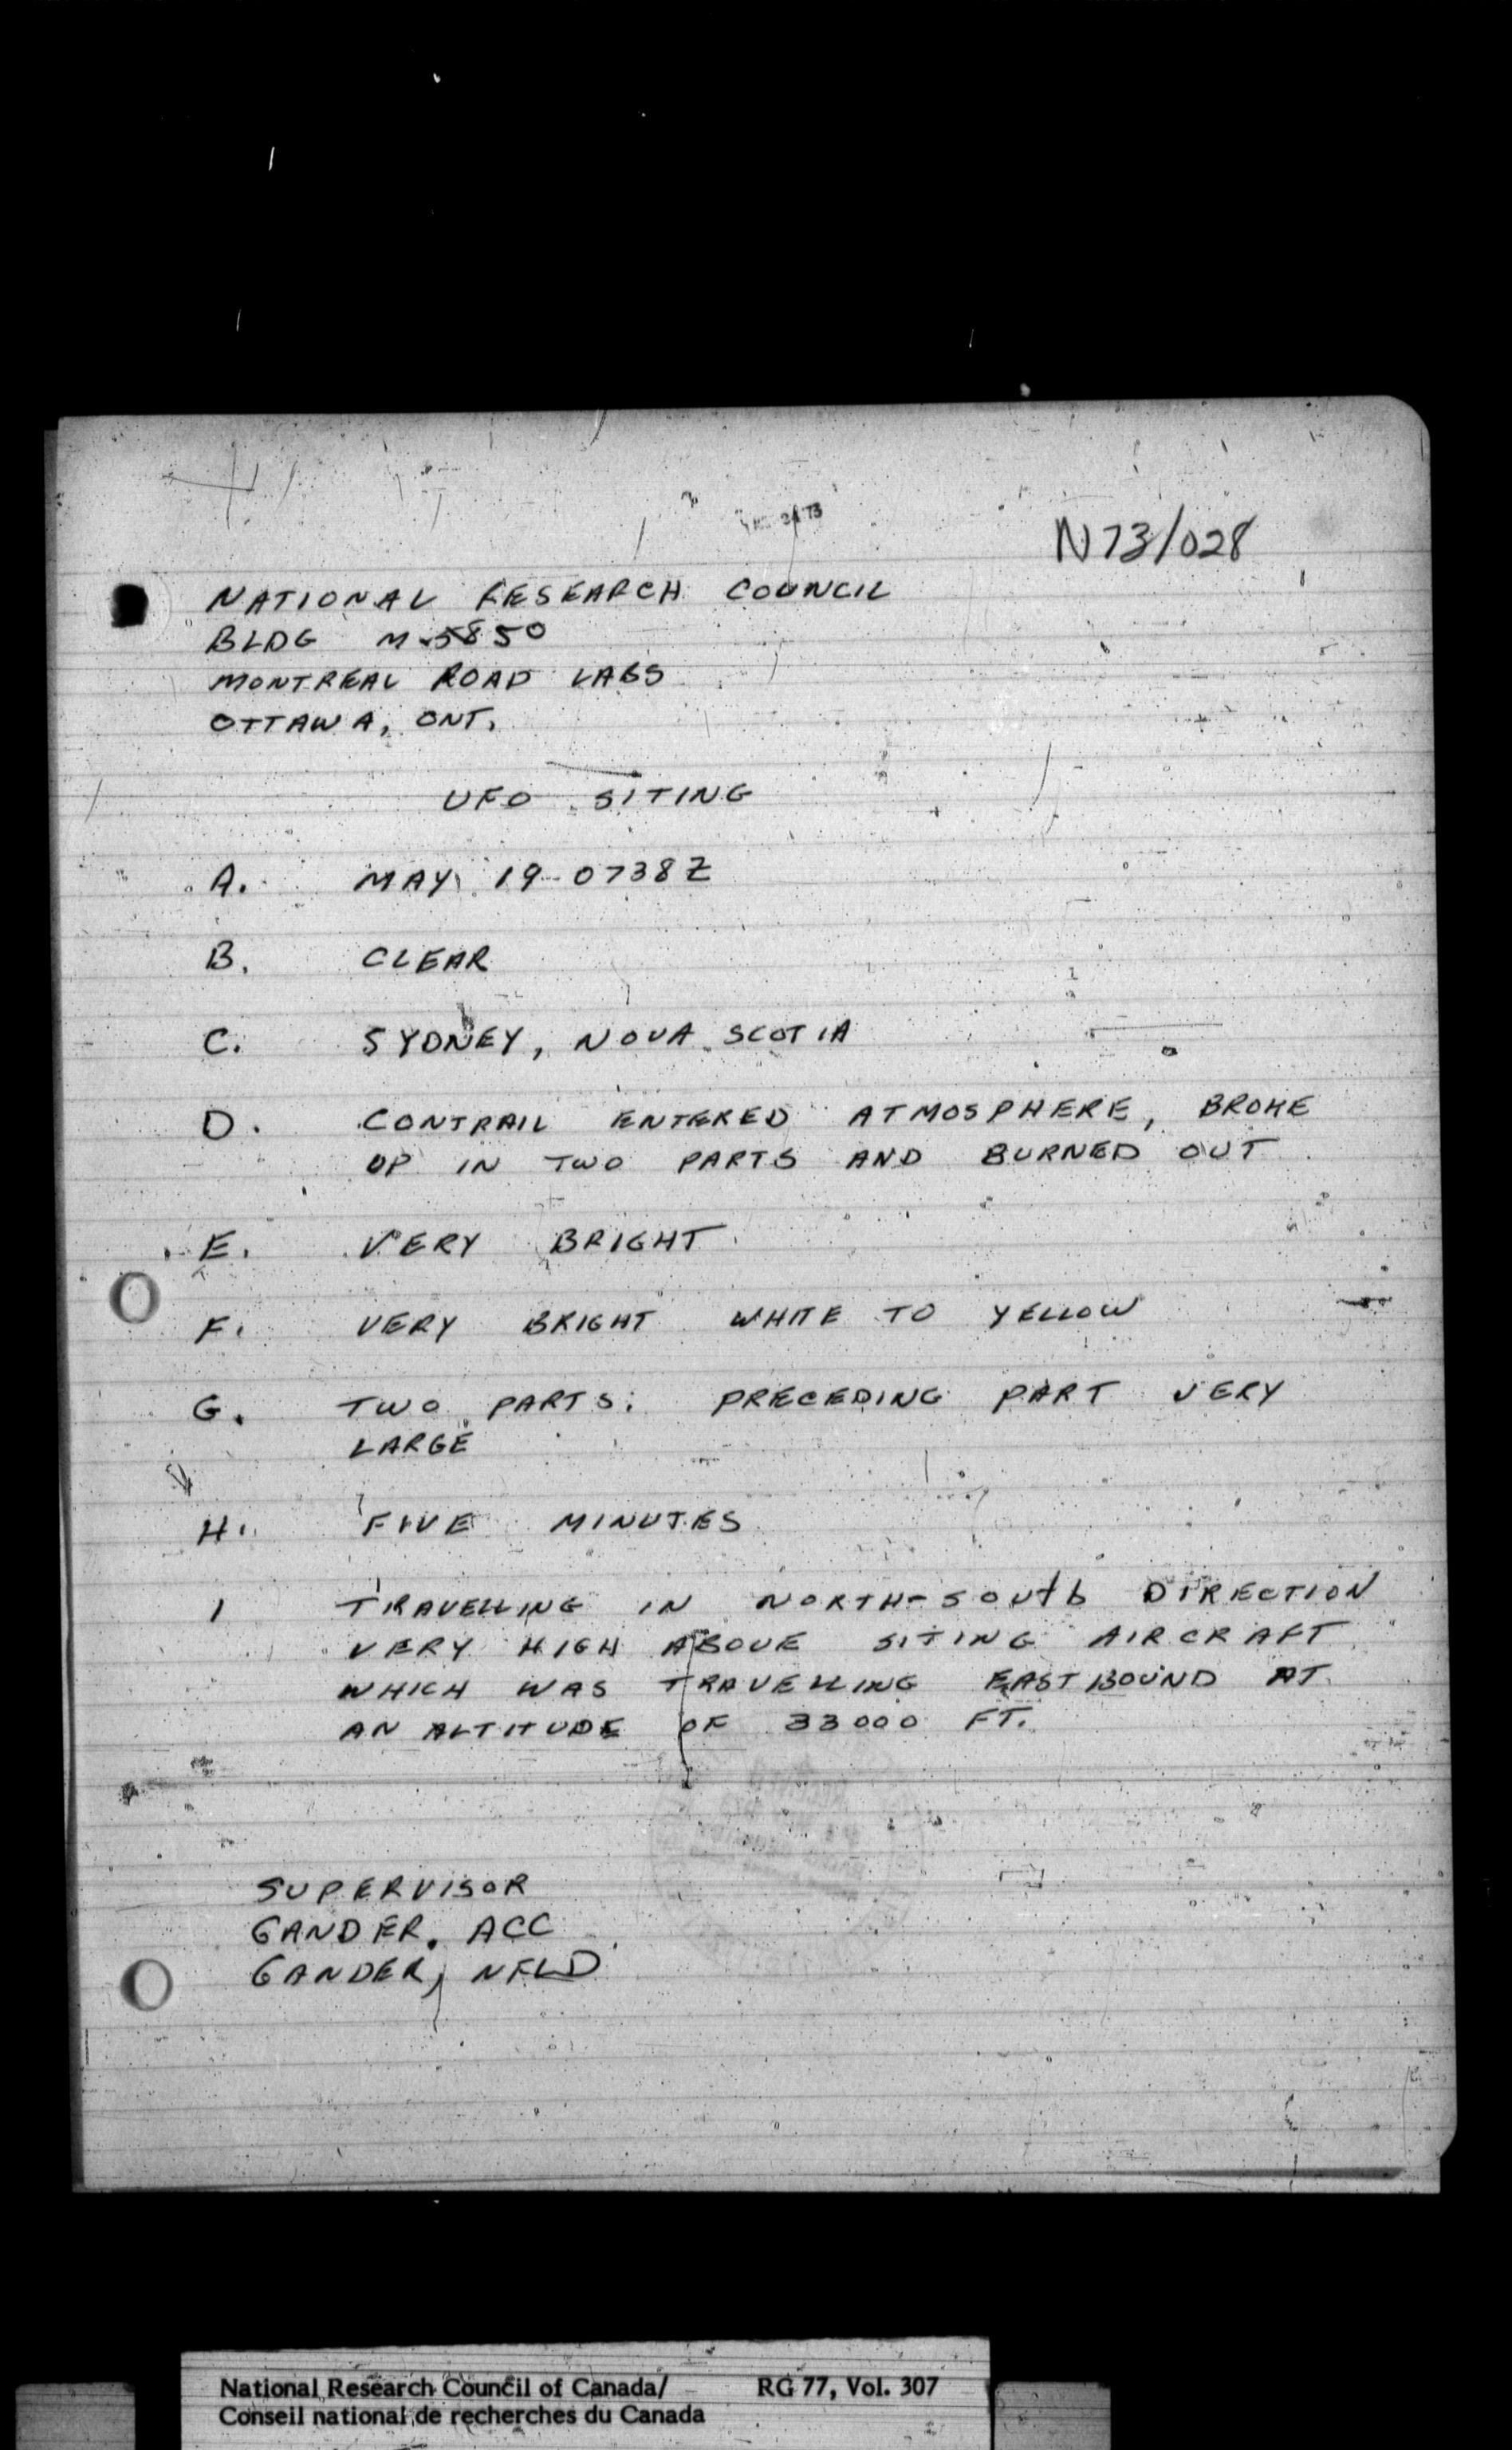 N73/028
NATIONAL RESEARCH COUNCIL
BLDG M-5850
MONTREAL ROAD LABS
OTTAWA, ONT.
UFO SITING
A. MAY 19 0738Z
B. CLEAR
C. SYDNEY, NOVA SCOTIA
D. CONTRAIL ENTERED ATMOSPHERE, BROKE
UP IN TWO PARTS AND BURNED OUT
E. VERY BRIGHT
F. VERY BRIGHT WHITE TO YELLOW
G. TWO PARTS: PRECEDING PART VERY
LARGE
H. FIVE MINUTES
I TRAVELLING IN NORTH-SOUTH DIRECTION
VERY HIGH ABOVE SITING AIRCRAFT
WHICH WAS TRAVELLING EASTBOUND AT
AN ALTITUDE OF 33000 FT.
SUPERVISOR
GANDER, ACC
GANDER, NFLD
National Research Council of Canada/ RG 77, Vol. 307
Conseil national de recherches du Canada